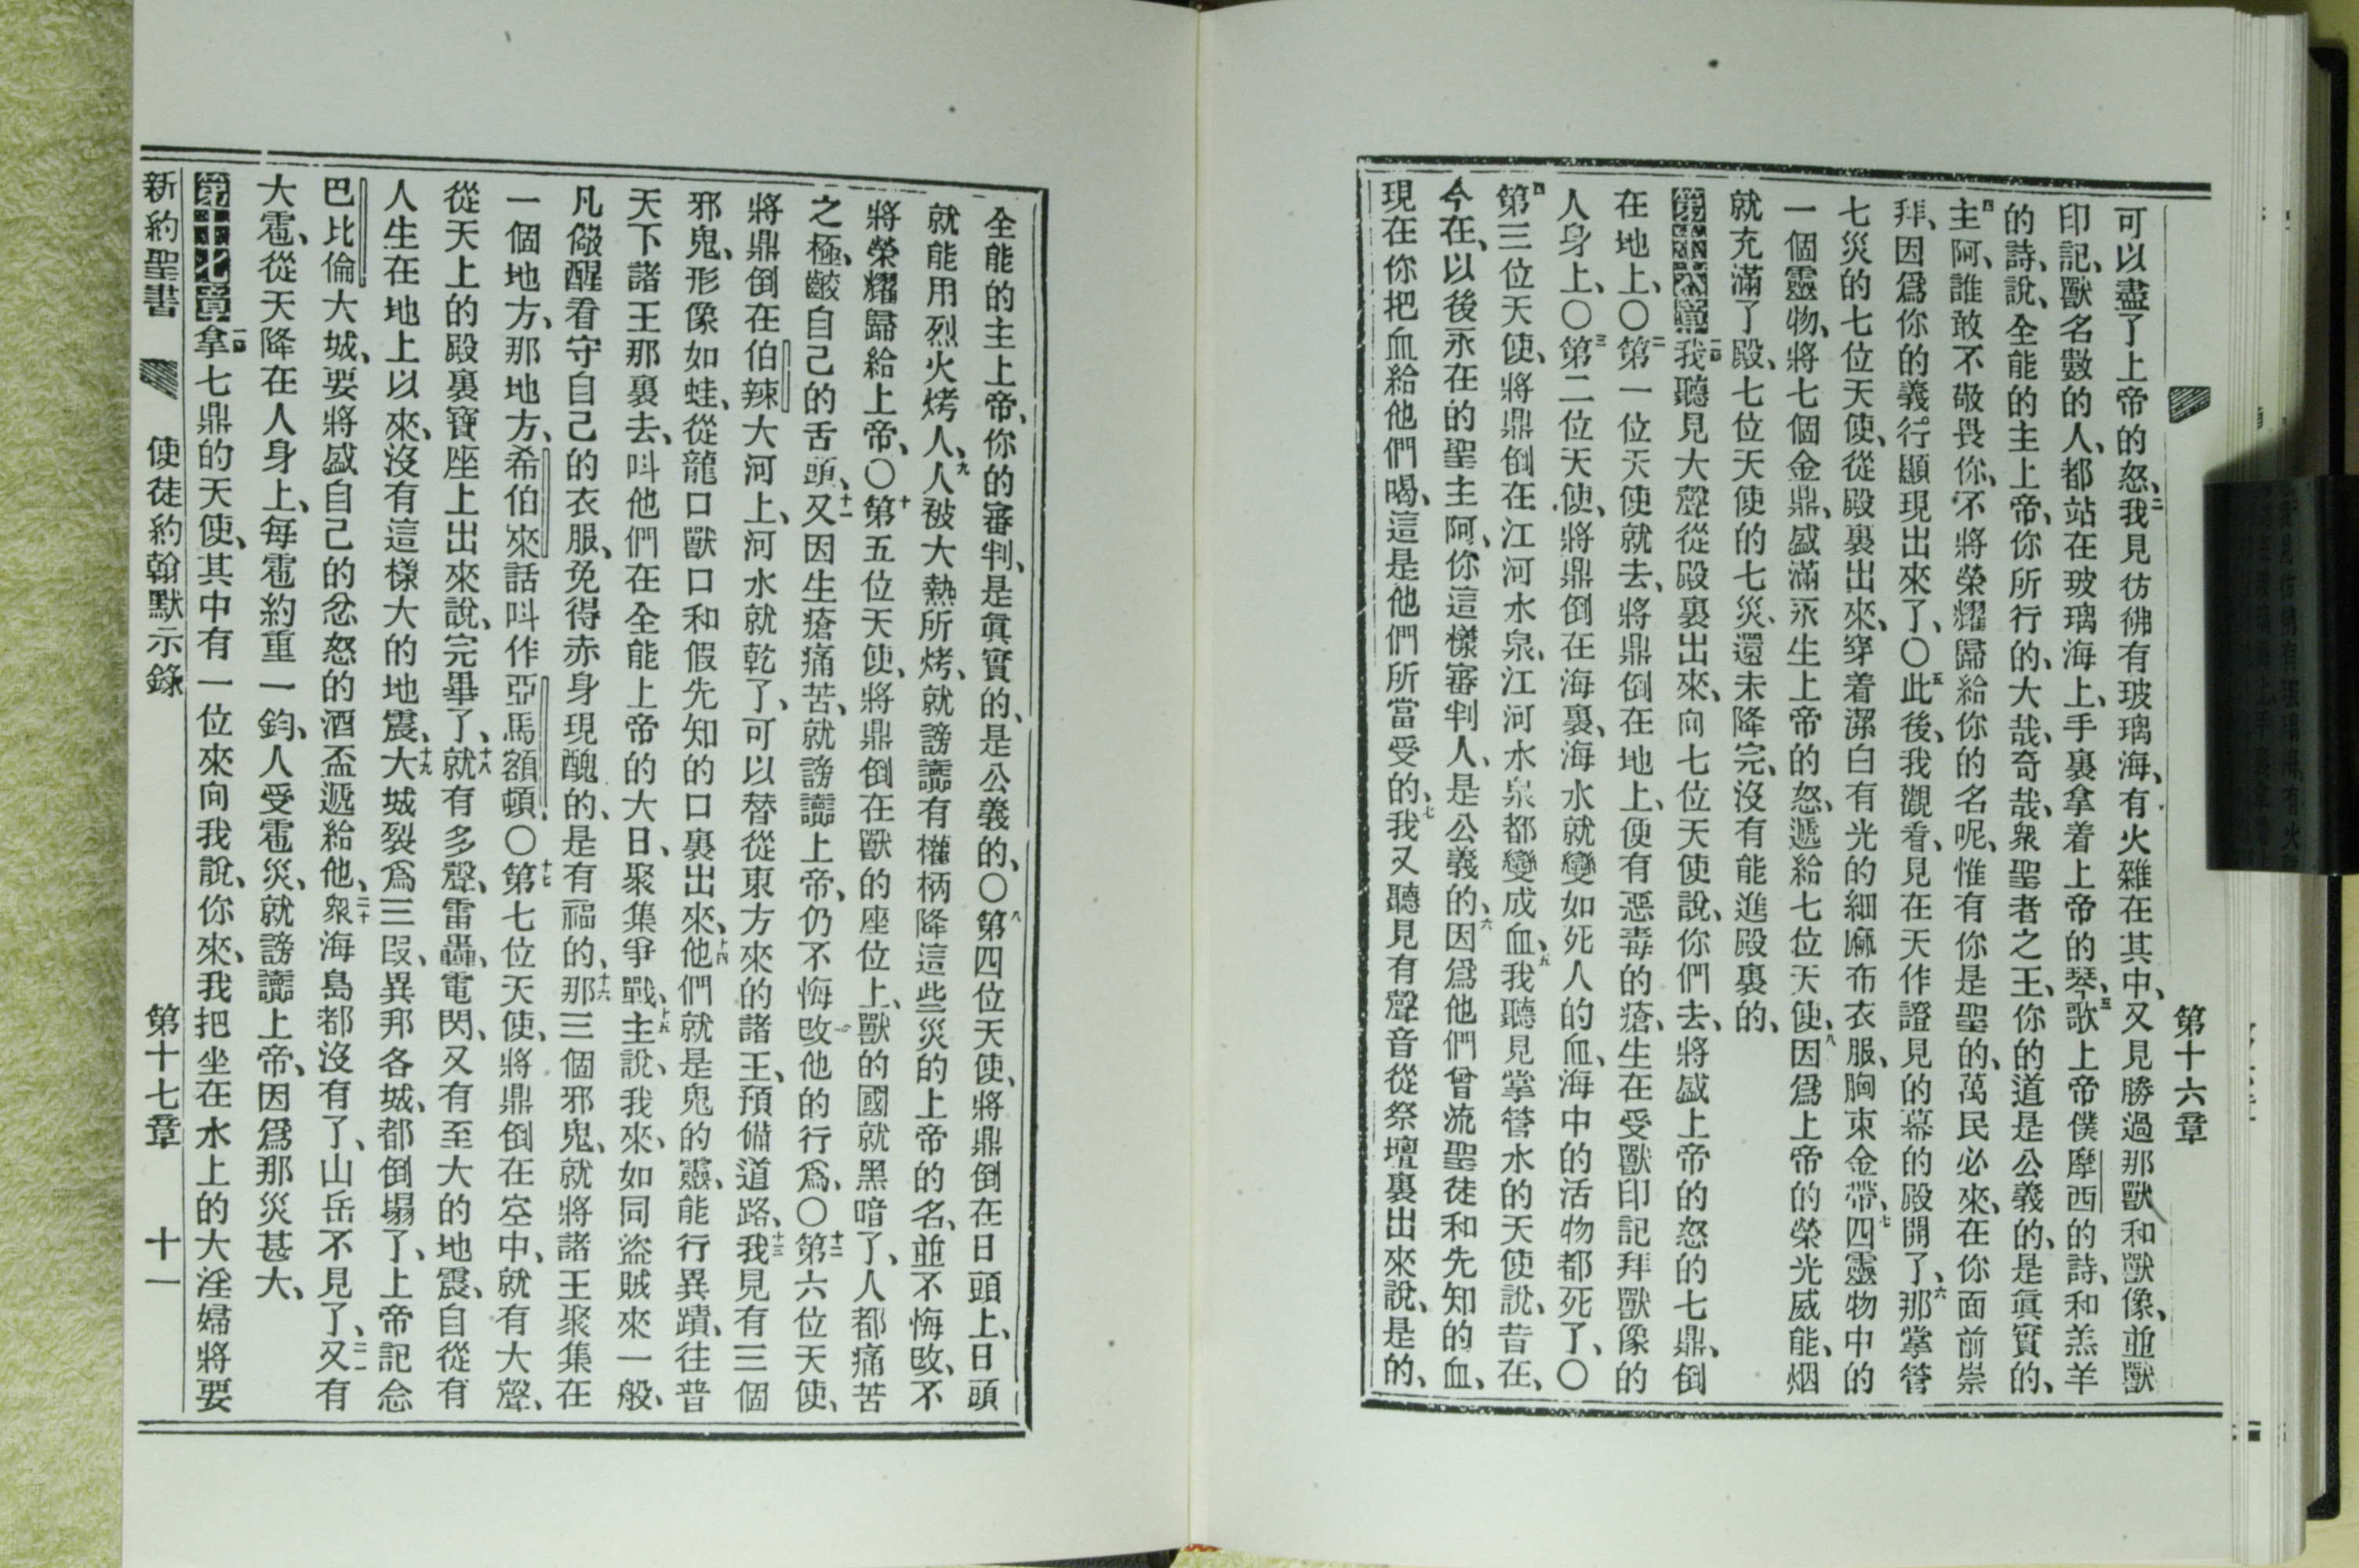 第十六章
可以盡了上帝的怒、二我見彷彿有玻璃海、有火雜在其中、又見勝過那獸和獸像、並獸
印記、獸名數的人、都站在玻璃海上、手裏拿着上帝的琴、三歌上帝僕摩西的詩、和羔羊
的詩、說、全能的主上帝、你所行的、大哉、奇哉、衆聖者之王、你的道是公義的、是眞實的、
四主阿、誰敢不敬畏你、不將榮耀歸給你的名呢、惟有你是聖的、萬民必來、在你面前崇
拜、因爲你的義行顯現出來了、〇五此後、我觀看、見在天作證見的幕的殿開了、六那掌管
七災的七位天使、從殿裏出來、穿着潔白有光的細麻布衣服、胸束金帶、七四靈物中的
一個靈物、將七個金鼎、盛滿永生上帝的怒、遞給七位天使、八因爲上帝的榮光威能、烟
就充滿了殿、七位天使的七災、還未降完、沒有能進殿裏的、
第十六章一我聽見大聲從殿裏出來、向七位天使說、你們去、將盛上帝的怒的七鼎、倒
在地上、〇二第一位天使就去、將鼎倒在地上、便有惡毒的瘡、生在受獸印記拜獸像的
人身上、〇三第二位天使、將鼎倒在海裏、海水就變如死人的血、海中的活物都死了、〇
四第三位天使、將鼎倒在江河水泉、江河水泉都變成血、五我聽見掌管水的天使說、昔在、
今在、以後永在的聖主阿、你這樣審判人、是公義的、六因爲他們曾流聖徒和先知的血、
現在你把血給他們喝、這是他們所當受的、七我又聽見有聲音從祭壇裏出來說、是的、
全能的主上帝、你的審判、是眞實的、是公義的、〇八第四位天使、將鼎倒在日頭上、日頭
就能用烈火烤人、九人被大熱所烤、就謗讟有權柄降這些災的上帝的名、並不悔改、不
將榮耀歸給上帝、〇十第五位天使、將鼎倒在獸的座位上、獸的國就黑暗了、人都痛苦
之極、齩自己的舌頭、十一又因生瘡痛苦、就謗讟上帝、仍不悔改他的行爲、〇十二第六位天使、
將鼎倒在伯辣大河上、河水就乾了、可以替從東方來的諸王、預備道路、十三我見有三個
邪鬼、形像如蛙、從龍口獸口和假先知的口裏出來、十四他們就是鬼的靈、能行異蹟、往普
天下諸王那裏去、呌他們在全能上帝的大日、聚集爭戰、十五主說、我來、如同盜賊來一般、
凡儆醒看守自己的衣服、免得赤身現醜的、是有福的、十六那三個邪鬼、就將諸王聚集在
一個地方、那地方、希伯來話呌作亞馬額頓、〇十七第七位天使、將鼎倒在空中、就有大聲、
從天上的殿裏寶座上出來、說、完畢了、十八就有多聲、雷轟、電閃、又有至大的地震、自從有
人生在地上以來、沒有這樣大的地震、十九大城裂爲三段、異邦各城、都倒塌了、上帝記念
巴比倫大城、要將盛自己的忿怒的酒盃遞給他、二十衆海島都沒有了、山岳不見了、二一又有
大雹、從天降在人身上、每雹約重一鈞、人受雹災、就謗讟上帝、因爲那災甚大、
第十七章一拿七鼎的天使、其中有一位來向我說、你來、我把坐在水上的大淫婦將要
新約聖書 使徒約翰默示錄 第十七章 十一